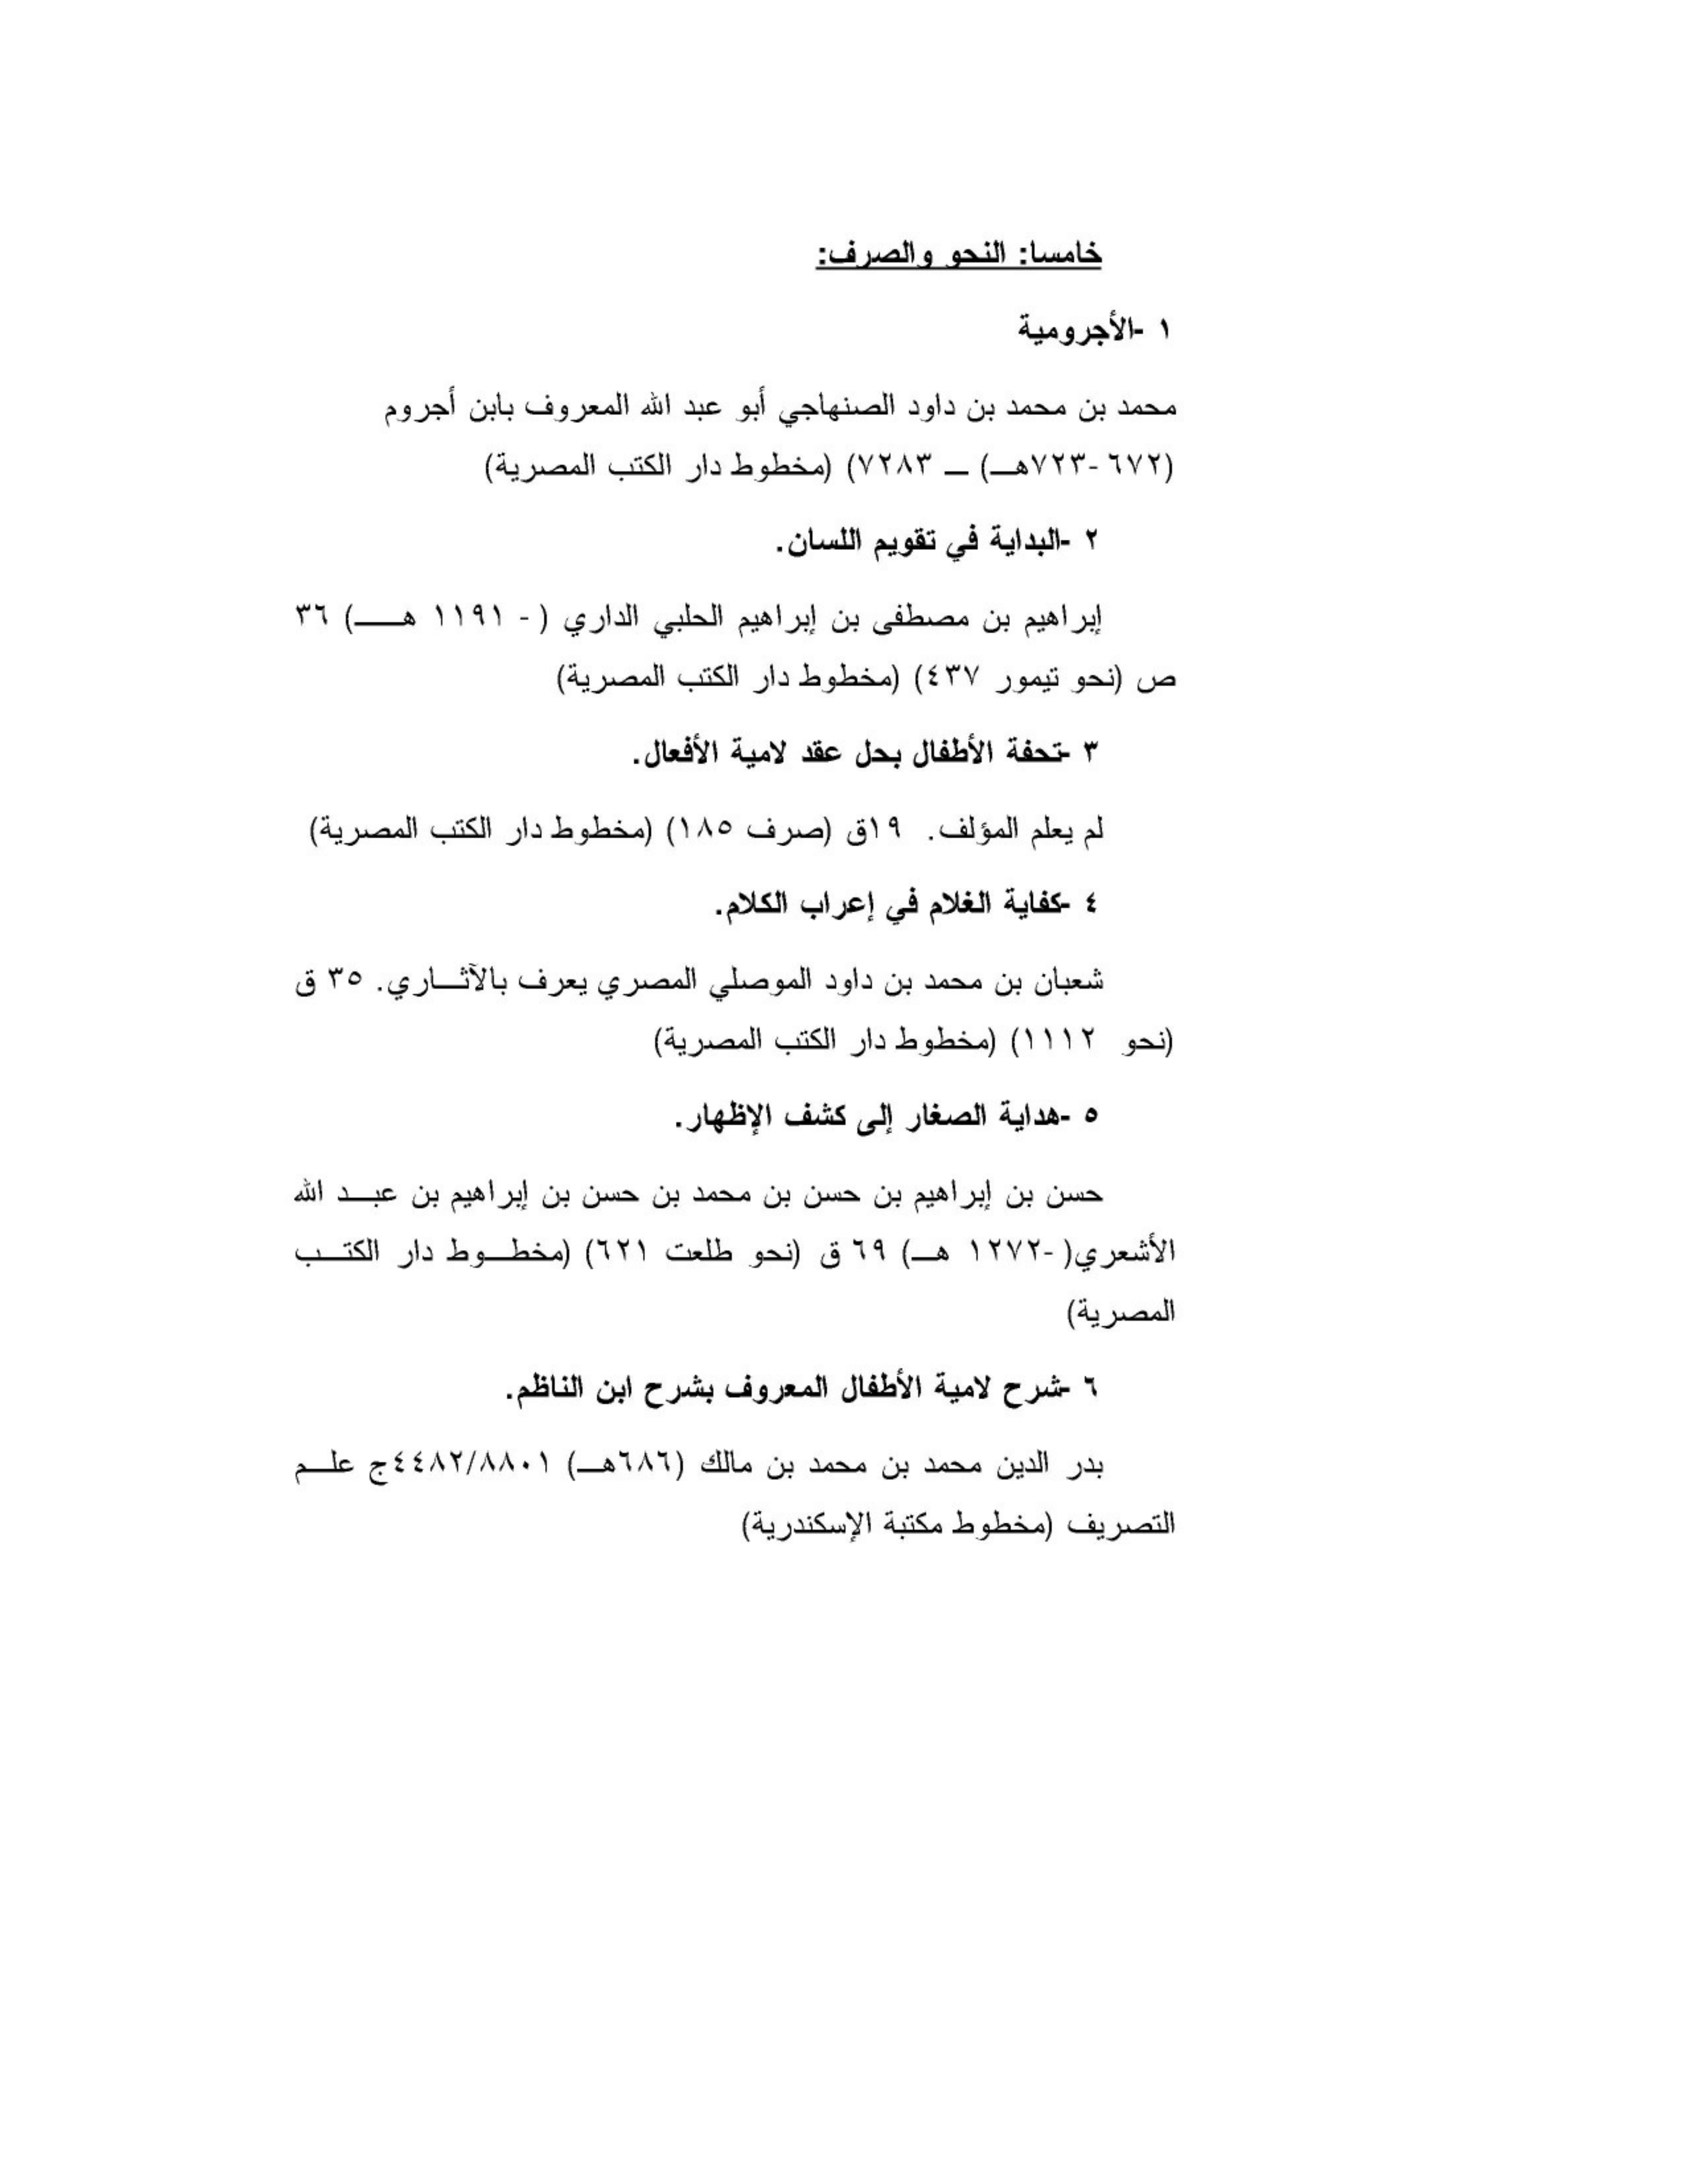 خامسا: النحو والصرف:
١ -الأجرومية
محمد بن محمد بن داود الصنهاجي أبو عبد الله المعروف بابن أجروم
(٦٧٢ -٧٢٣هـ) ــ ٧٢٨٣) (مخطوط دار الكتب المصرية)
٢ -البداية في تقويم اللسان.
إبراهيم بن مصطفى بن إبراهيم الحلبي الداري ( - ١١٩١ هـ) ٣٦
ص (نحو تيمور ٤٣٧) (مخطوط دار الكتب المصرية)
٣ -تحفة الأطفال بحل عقد لامية الأفعال.
لم يعلم المؤلف. ١٩ق (صرف ١٨٥) (مخطوط دار الكتب المصرية)
٤ -كفاية الغلام في إعراب الكلام.
شعبان بن محمد بن داود الموصلي المصري يعرف بالآثاري. ٣٥ ق
(نحو ١١١٢) (مخطوط دار الكتب المصرية)
٥ -هداية الصغار إلى كشف الإظهار.
حسن بن إبراهيم بن حسن بن محمد بن حسن بن إبراهيم بن عبد الله
الأشعري( -١٢٧٢ هـ) ٦٩ ق (نحو طلعت ٦٢١) (مخطوط دار الكتب
المصرية)
٦ -شرح لامية الأطفال المعروف بشرح ابن الناظم.
بدر الدين محمد بن محمد بن مالك (٦٨٦هـ) ٤٤٨٢/٨٨٠١ج علم
التصريف (مخطوط مكتبة الإسكندرية)